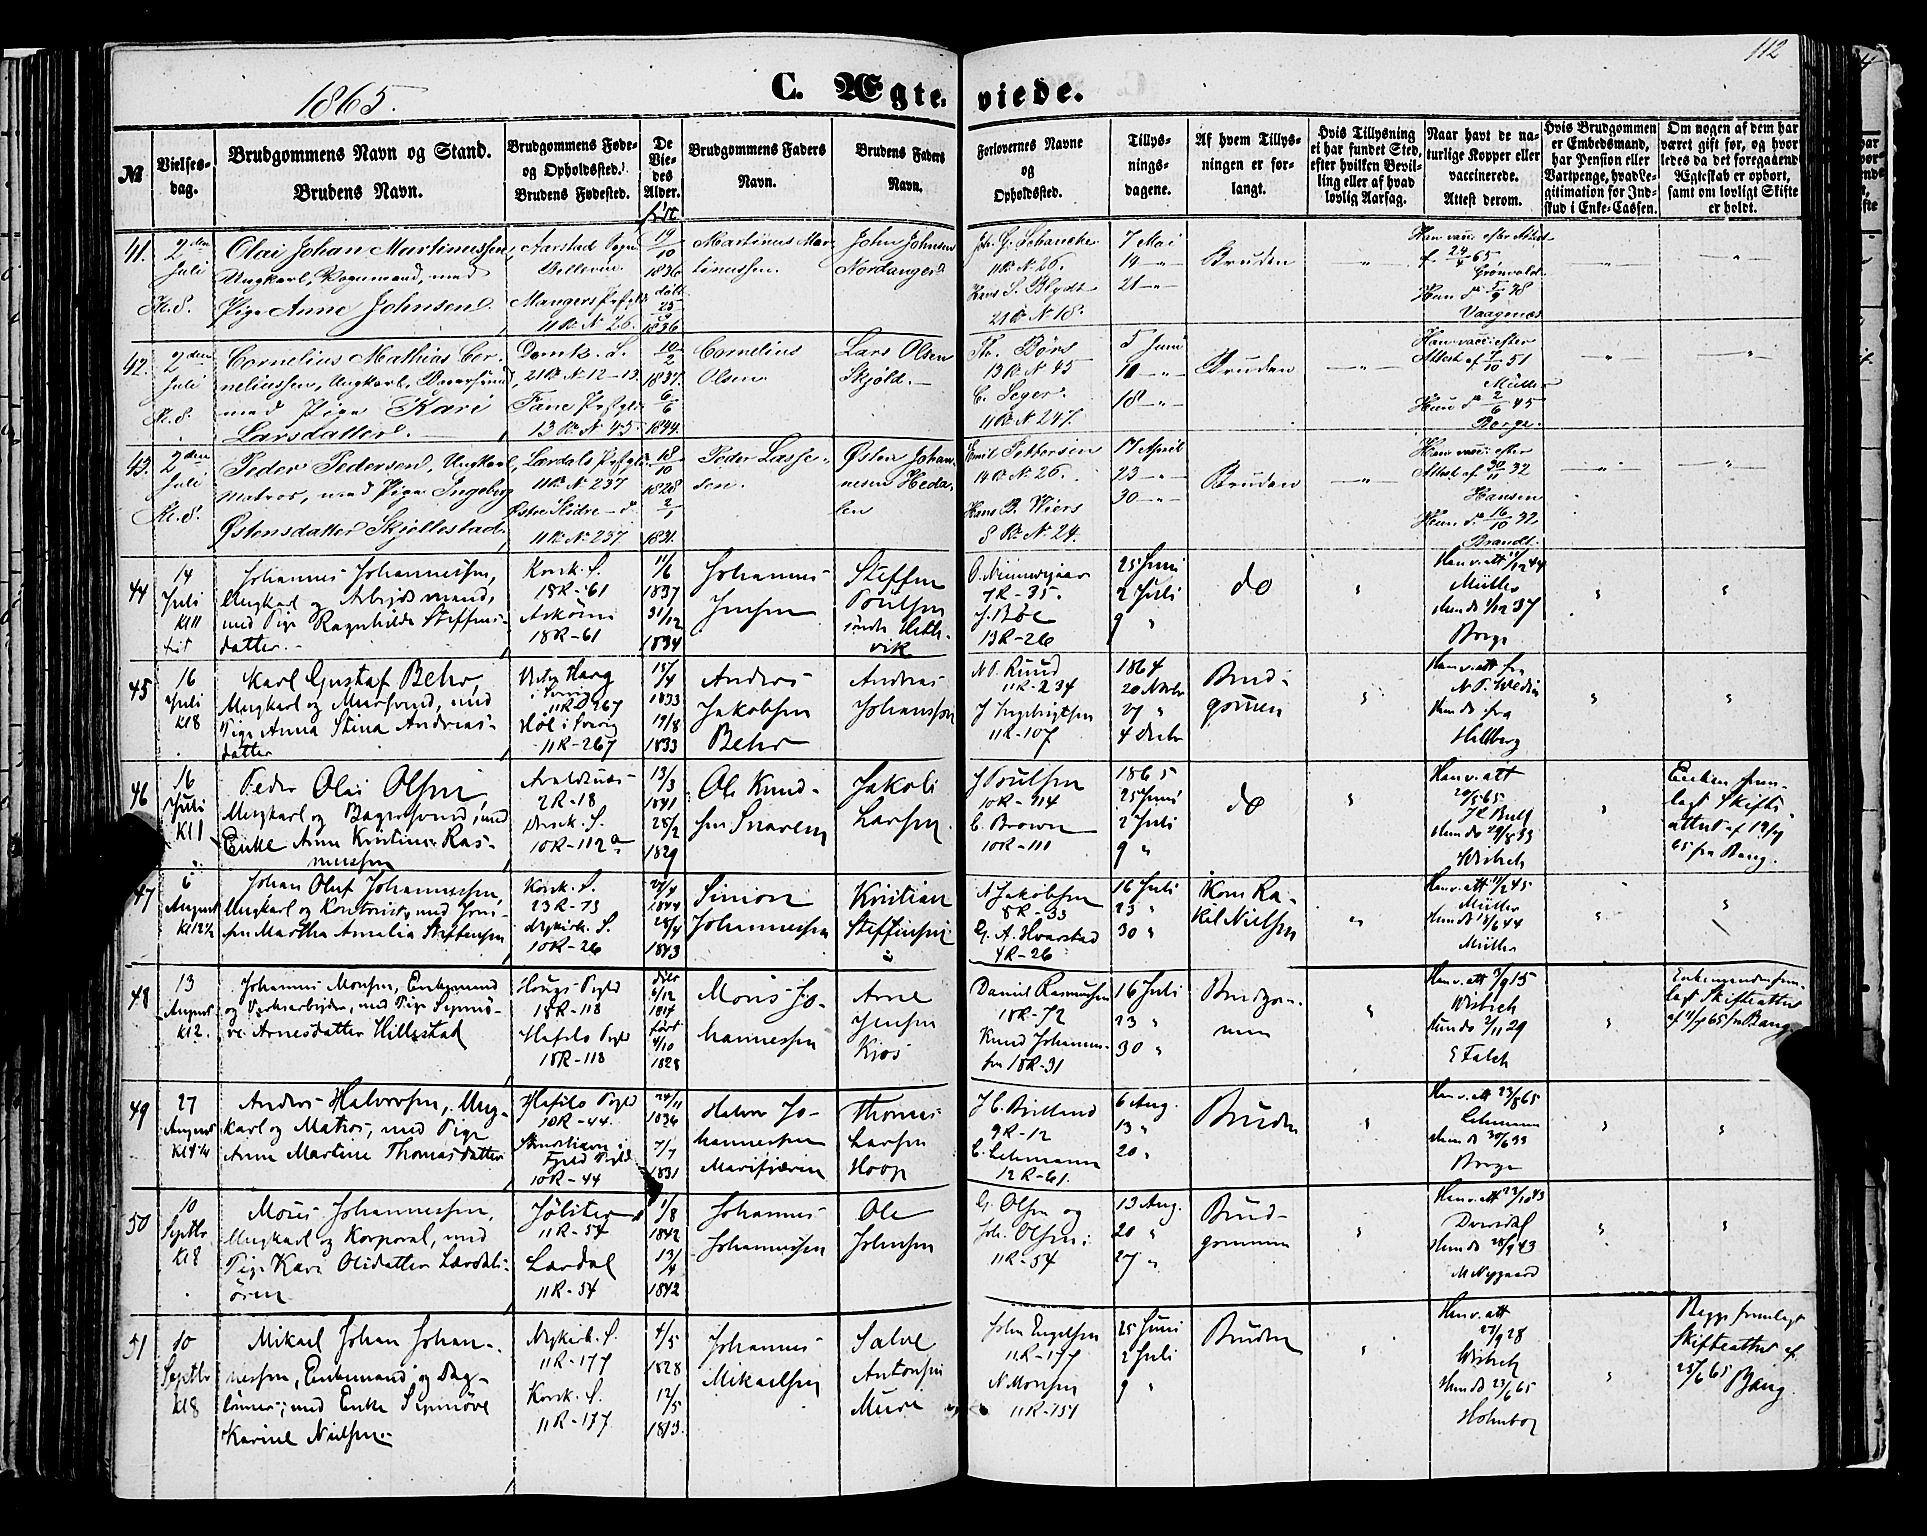 112
1865.
C. Ægteviede.
№
Vielsesdag.
Brudgommens Navn og Stand.
Brudens Navn.
Brudgommens Føde-
og Opholdssted.
Brudens Fødested.
De
Vie-
des
Alder.
født
Brudgommens Faders
Navn.
Brudens Faders
Navn.
Forlovernes Navne
og
Opholdssted.
Tillys-
nings-
dagene.
Af hvem Tillys-
ningen er for-
langt.
Hvis Tillysning
ei har fundet Sted,
efter hvilken Bevil-
ling eller af hvad
lovlig Aarsag.
Naar havt de na-
turlige Kopper eller
vaccinerede.
Attest derom.
Hvis Brudgommen
er Embedsmand,
har Pension eller
Vartpenge, hvad Le-
gitimation for Ind-
skud i Enke-Cassen.
Om nogen af dem har
været gift før, og hvor-
ledes da det foregaaende
Ægteskab er ophørt,
samt om lovligt Skifte
er holdt.
41.
2den
Juli
Kl. 8.
Olai Johan Martinussen,
Ungkarl,
Pige Anne Johnsen.
Aarstad Sogn
Bellevue.
Mangers Præstgld
11 R. N 26.
19/10
1836
døbt
25
1836
Martinus Mar-
tinussen.
John Johnsen
Nordanger
11 R. N 26.
Hans S. Blydt
21 R. N 18.
7 Mai
14 —
21 —
Bruden
Han vacc. efter Attest
af 24/4 65
Grønvold.
Vaagenæs
42.
2den
Juli
Kl. 8.
Cornelius Mathias Cor-
neliussen, Ungkarl, Bagersvend
med Pige Kari
Larsdatter.
Domk. S.
21 R. N 12-13
Fane Præstgld
13 R. N 45.
10/2
1837.
6/6
1844.
Cornelius
Olsen.
Lars Olsen
Skjold.
Th. Børs
13 R. N 45
C. Seger.
11 R. N 247.
5 Juni
18 —
Bruden
Han vacc. efter
Attest af 7/10 51
Müller
Hun do 2/6 45
Berge.
43.
2den
Juli
Kl. 8.
Peder Pedersen, Ungkarl,
Matros, med Pige Ingeborg
Østensdatter Skjøllestad
Lærdals Præstgld
11 R. N 237
Østre Slidre
11 R. N 237.
18/10
1828
2/1
1831.
Peder Lasse-
sen.
Østen Johan-
nesen Heda-
len
Emil Pettersen
14 R. N 26.
Hans B. Wiers
8 R. N 24.
17 April
23 —
30 —
Bruden
Han vacc. efter
Attest af 30/11 32
Hansen
Hun do 16/10 32.
Brandt.
44
14
Juli
Kl 11
Johannes Johannessen,
Ungkarl og Arbejdsmand,
med Pige Ragnhilda Steffens-
datter.
Korsk. S.
18R-61
Askøens
18R-61
11/6
1837
31/12
1834
Johannes
Jensen
Steffen
Poulsen
vik
7R-35.
J. Bøe
13R-26
25 Juni
2 Juli
9 "
do
Müller
Hun do 1/12 37
Berge
45
16
Juli
Kl 8
Karl Gustaf Behr,
Ungkarl og Mursvend, med
Pige Anna Stina Andreas-
datter
11R-267
Høl i Sverig
11R-267
15/4
1833
19/8
1833
Andreas
Jakobsen
Behr
Andreas
Johansson
N P. Ruud
11R-234
J Ingebrigtsen
11R-107
1864
20 Novbr
27 "
4 Decbr
Brud-
gomen
Han v. att fra
Hun do fra
Hellberg
46
16
Juli
Kl 1
Peder Olai Olsen,
Ungkarl og Bagersvend, med
Enke Anne Kristine Ras-
mussen
Avaldsnæs
2R-18
Domk. S.
10R-112a
13/3
1841
28/2
1829
Ole Knud-
sen Snaren
Jakob
Larsen
J Poulsen
10R-114
C. Brown
10R-111
1865
25 Juni
2 Juli
9 "
do
Han v. att
20/5 65
J C Bull
Hun do 29/8 33
Wisbech
Enken frem-
lagt Skifte-
attest af 12/7
65 fra Bang.
47
6
August
Kl 12½
Johan Oluf Johannessen,
Ungkarl og Kontorist, med Jom-
fru Martha Amalia Steffensen
Korsk. S.
23R-73
Nykirk. S.
10R-26
27/4
1844
28/4
1843
Simon
Johannessen
Kristian
Steffensen
A Jakobsen
8R-33
G. A. Hvarstad
4R-26
16 Juli
23 "
30 "
Kom Ra-
kel Nielsen
Han v. att 11/2 45
Müller
Hun do 18/6 44
Müller
48
13
August
Kl 2.
Johannes Monsen, Enkemand
og Værksarbejder, med Pige Synnø-
ve Arnesdatter Hillestad
Hougs Prgld
18R-118
Hafslo Prgld
18R-118
døbt
6/12
1814
født
4/10
1828
Mons Jo-
hannessen
Arne
Jensen
Kjos
Daniel Rasmussen
18R-72
Knud Johannes-
sen 18R-31
16 Juli
23 "
30 "
Brudgom-
men
Han v. att 3/9 15
Wisbech
Hun do 2/11 29
E Falch
Enkemanden frem-
lagt Skifteattest
af 11/7 65 fra Bang
49
27
August
Kl 4¼
Anders Halvorsen, Ung-
karl og Matros, med Pige
Anne Martine Thomasdatter
Hafslo Prgld
10R-44.
Fjeld Prgld
10R-44
24/11
1836
7/7
1831
Halvor Jo-
hannessen
Marifjæren
Thomas
Larsen
Hoop
9R-12
C. Lehmann
12R-61.
6 Aug.
13 "
20 "
Bruden
Han v. att 23/8 65
Lehmann
Hun do 30/6 33
Berge
50
10
Septbr
Kl 8
Mons Johannessen,
Ungkarl og Korporal, med
Pige Kari Olsdatter Lærdals-
ören
Jölster
11R-54
Lærdal
11R-54
1/8
1842
13/4
1842
Johannes
Johannessen
Ole
Johnsen
G. Olsen og
Joh. Olsen i
11R-54
13 Aug.
20 "
27 "
Brud-
gommen
Han v. att 23/10 43
Hun do 28/9 43
M Nygaard
51
10
Septbr
Kl 8
Mikael Johan Johan-
nessen, Enkemand og Dag-
lönner, med Enke Synnøve
Karine Nielsen.
Nykirk. S.
11R-177
Korsk. S.
11R-177
4/5
1828
12/5
1813.
Johannes
Mikaelsen
Salve
Antonsen
Mure
John Engelsen
11R-177
N Monsen
11R-151
25 Juni
2 Juli
9 "
Bruden
Han v. att
27/9 28
Wisbech
Hun do 23/6 65
Holmboe
Begge fremlagt
Skifteattest af
25/6 65 Bang.